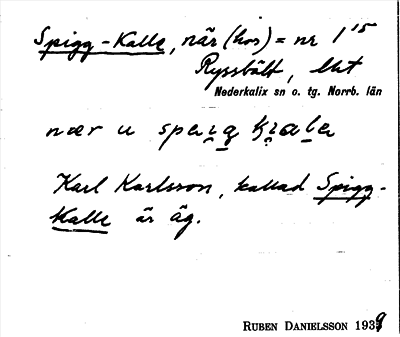 Spigg-Kalle, när (hos) = nr 1¹⁵
Ryssbält, lht
Nederkalix sn o. tg. Norrb. län
nær u
Karl Karlsson, kallad Spigg-
Kalle är äg.
RUBEN DANIELSSON 1939